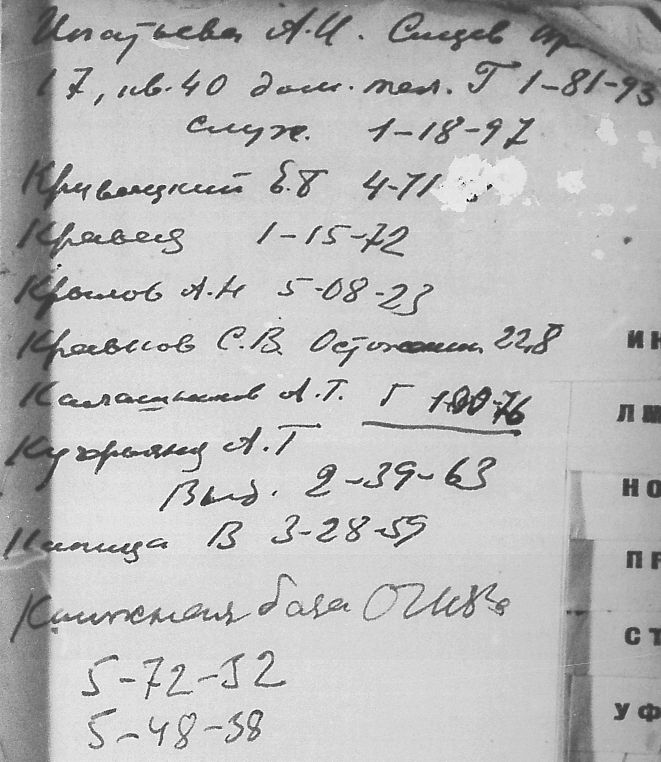 Игнатьева А.И. Сивцев Вр
17, кв. 40 дом. тел. Г 1-81-93
служ. 1-18-97
Кривицкий Е.Г 4-71
Кравец 1-15-72
Крылов А.Н 5-08-23
Кравков С.В. Остоженка 22,8
Калашников А.Г. Г 76
А.Г
2-39-63
Капица В 3-28-59
Книжная база ОГИЗа
5-72-32
5-48-38
ИК
ЛМ
НО
ПР
СТ
УФ